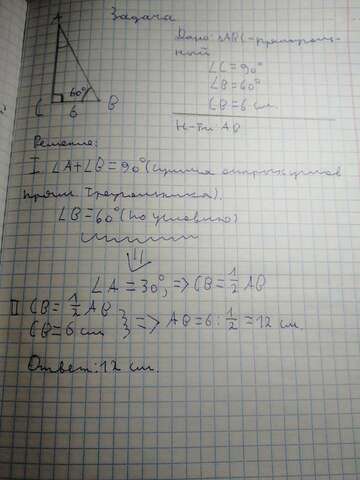 Задача
A
60°
C
6
B
Дано: △ABC - прямоуголь-
ный
∠C = 90°
∠B = 60°
CB = 6 см.
Н-ти AB
Решение:
I. ∠A + ∠B = 90° (сумма острых углов
прям. треугольника).
∠B = 60° (по условию)
∠A = 30°, => CB = 1/2 AB
II CB = 1/2 AB
CB = 6 см } => AB = 6 : 1/2 = 12 см.
Ответ: 12 см.